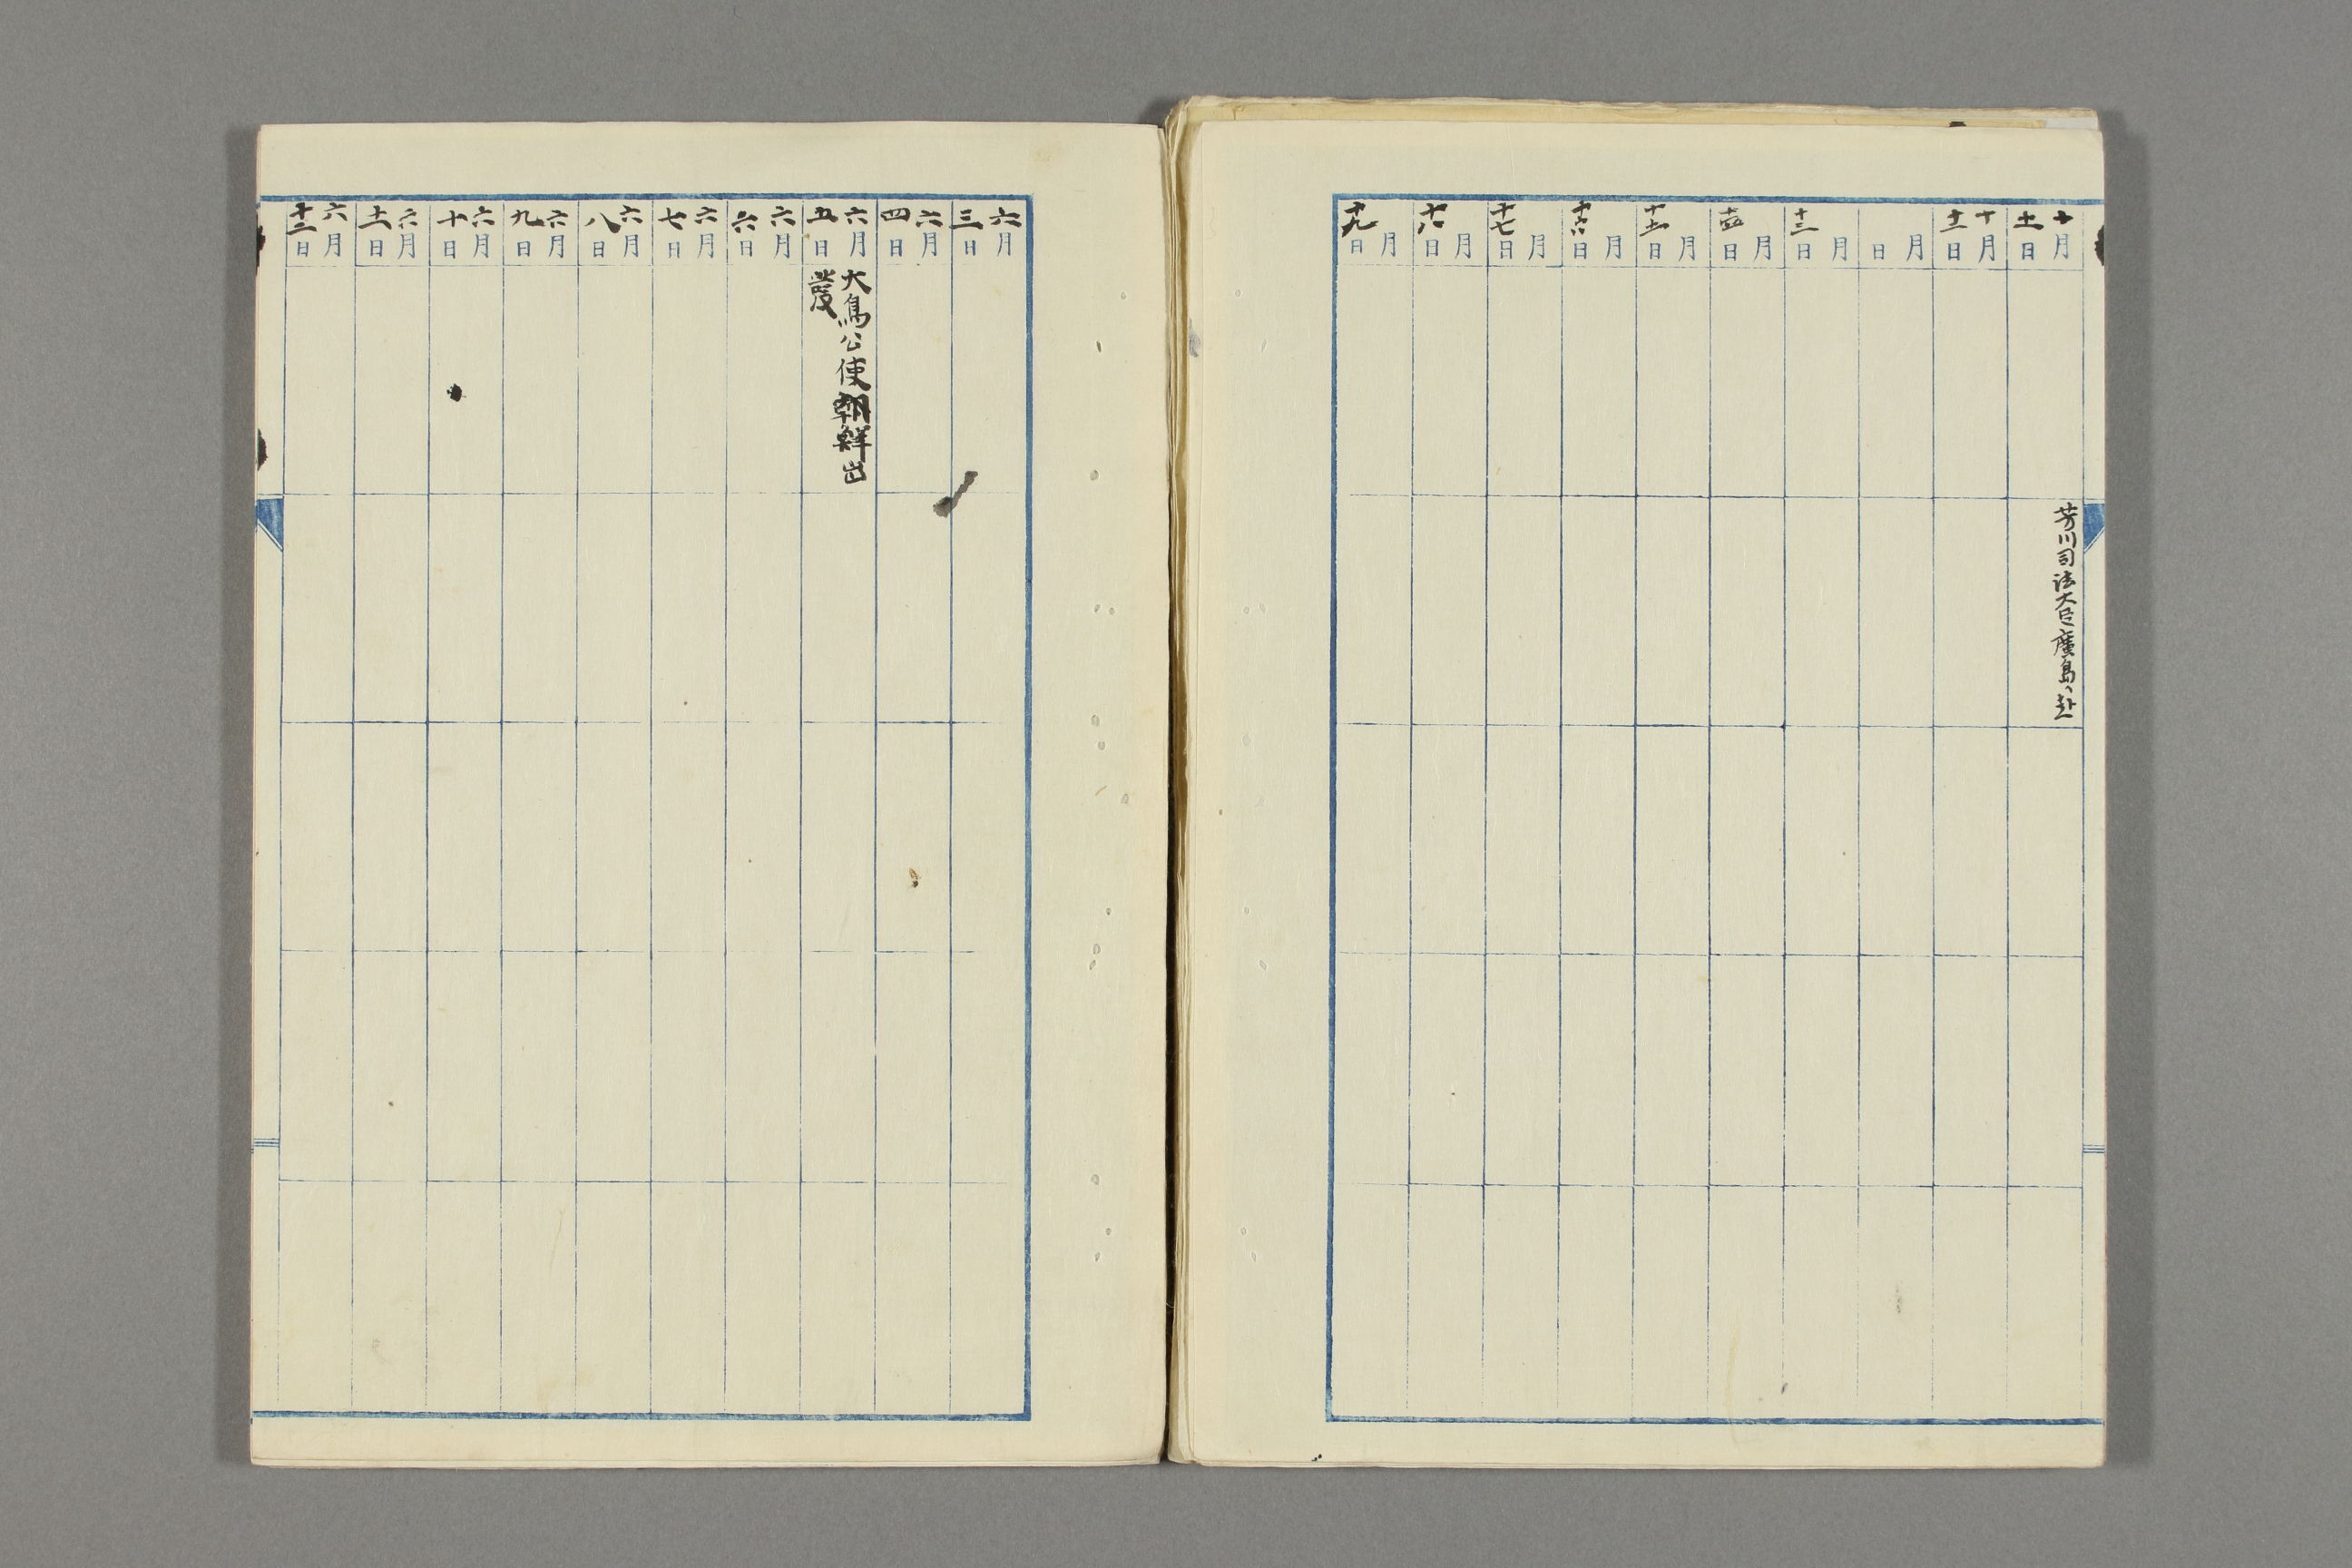 十月十一日
芳川司法大臣廣島ヘ赴
十月十二日
月日
月十三日
月日
月日
月十六日
月十七日
月十八日
月十九日
六月三日
六月四日
六月五日
大鳥公使朝鮮出
發
六月六日
六月七日
六月八日
六月九日
六月十日
六月十一日
六月十二日